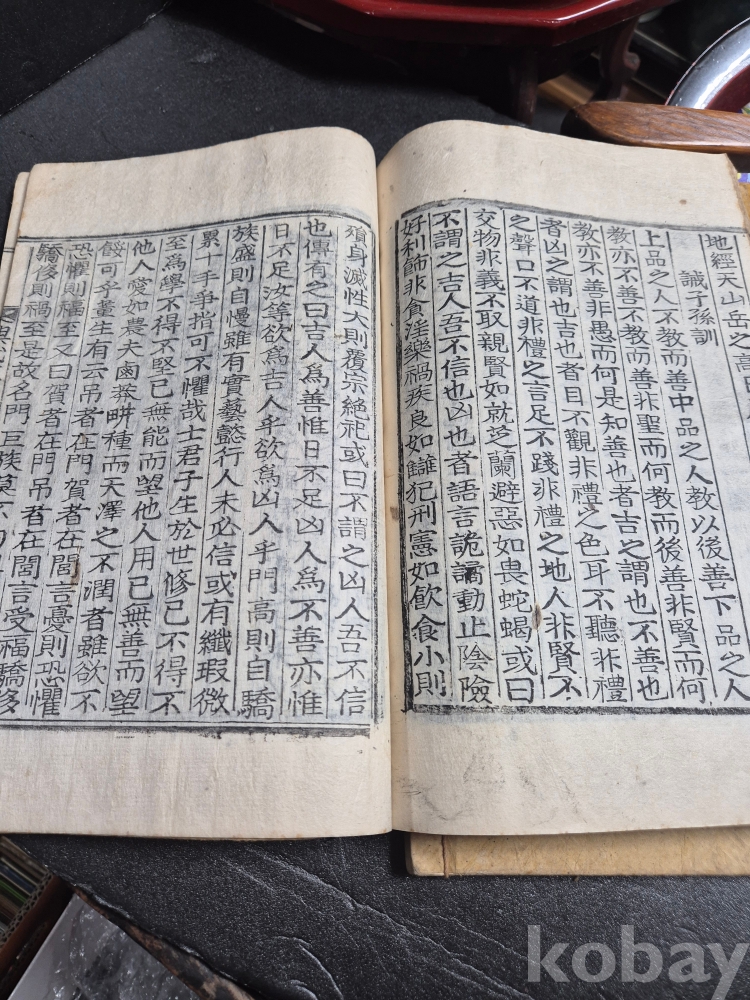 地經天山岳之高
誡子孫訓
上品之人不教而善中品之人教以後善下品之人
教亦不善不教而善非聖而何教而後善非賢而何
教亦不善非愚而何是知善也者吉之謂也不善也
者凶之謂也吉也者目不觀非禮之色耳不聽非禮
之聲口不道非禮之言足不踐非禮之地人非賢不
交物非義不取親賢如就芝蘭避惡如畏蛇蝎或曰
不謂之吉人吾不信也凶也者語言詭譎動止陰險
好利飾非貪淫樂禍疾良如讎犯刑憲如飮食小則
殞身滅性大則覆宗絶祀或曰不謂之凶人吾不信
也傳有之曰吉人爲善惟日不足凶人爲不善亦惟
日不足汝等欲爲吉人乎欲爲凶人乎門高則自驕
族盛則自慢雖有實藝懿行人未必信或有纖瑕微
累十手爭指可不懼哉士君子生於世修己不得不
至爲學不得不堅己無能而望他人用己無善而望
他人愛如農夫鹵莽畊種而天澤之不潤者雖欲不
餒可乎董生有云吊者在門賀者在閭言憂則恐懼
恐懼則福至又曰賀者在門吊者在閭言受福驕侈
驕侈則禍至是故名門巨族莫不
kobay